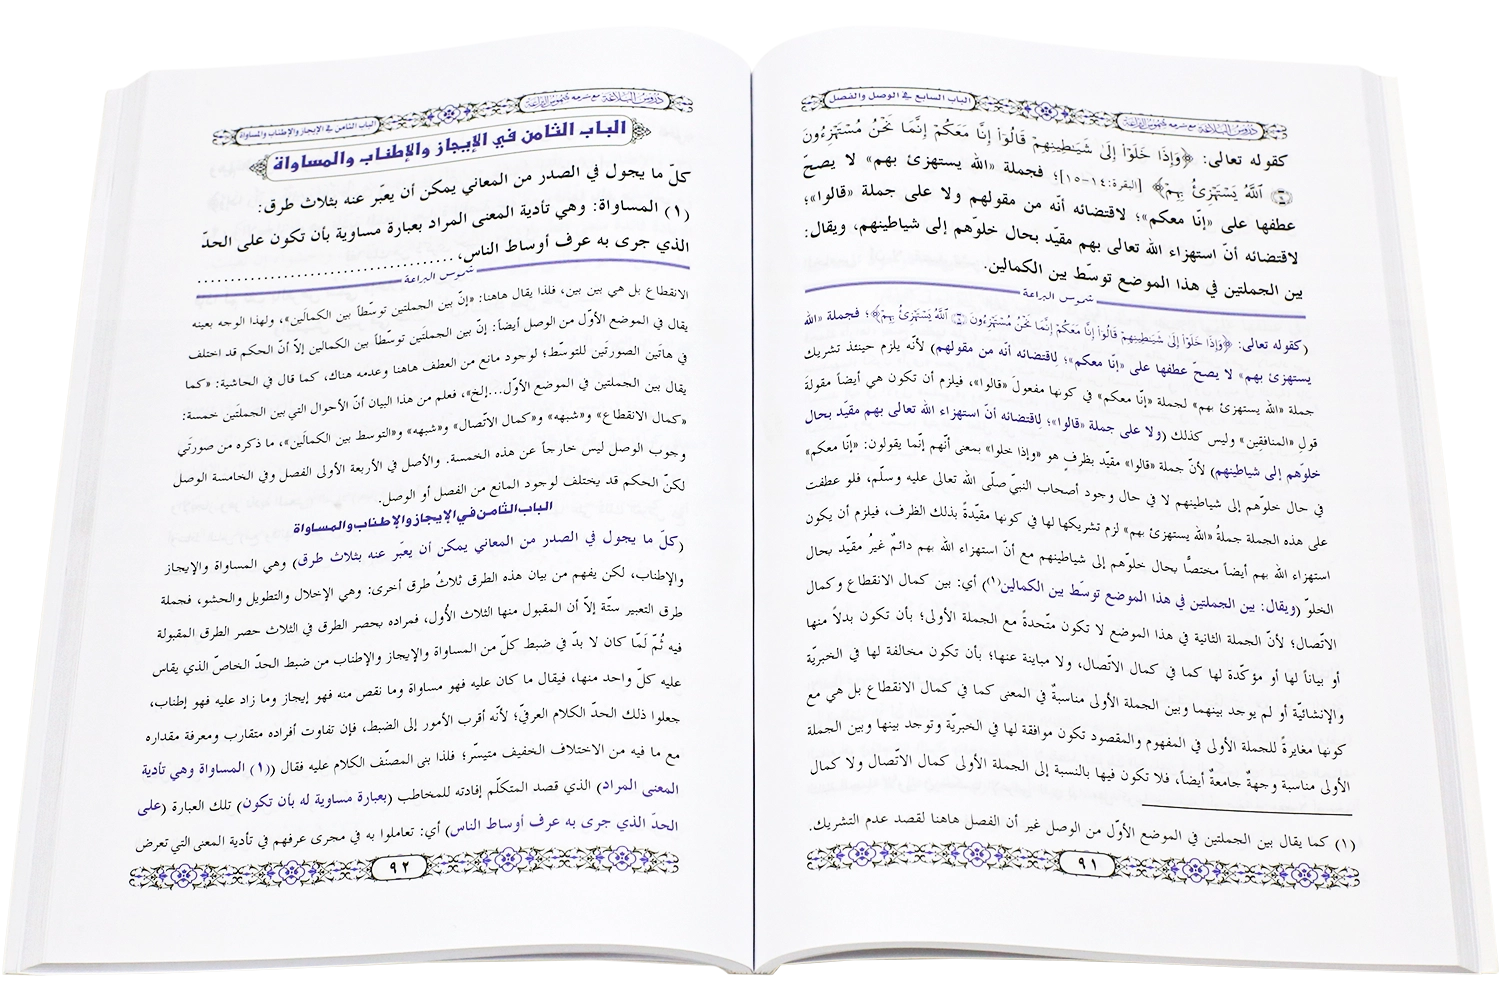 الباب السابع في الوصل والفصل
دروس البلاغة مع شرحه شموس البراعة
كقوله تعالى: ﴿وَإِذَا خَلَوْاْ إِلَىٰ شَيَـٰطِينِهِمْ قَالُوٓاْ إِنَّا مَعَكُمْ إِنَّمَا نَحْنُ مُسْتَهْزِءُونَ
ٱللَّهُ يَسْتَهْزِئُ بِهِمْ﴾ [البقرة:١٤-١٥]؛ فجملة «الله يستهزئ بهم» لا يصحّ
عطفها على «إنّا معكم»؛ لاقتضائه أنّه من مقولهم ولا على جملة «قالوا»؛
لاقتضائه أنّ استهزاء الله تعالى بهم مقيّد بحال خلوّهم إلى شياطينهم، ويقال:
بين الجملتين في هذا الموضع توسّط بين الكمالين.
شموس البراعة
(كقوله تعالى: ﴿وَإِذَا خَلَوْاْ إِلَىٰ شَيَـٰطِينِهِمْ قَالُوٓاْ إِنَّا مَعَكُمْ إِنَّمَا نَحْنُ مُسْتَهْزِءُونَ ٱللَّهُ يَسْتَهْزِئُ بِهِمْ﴾؛ فجملة «الله
يستهزئ بهم» لا يصحّ عطفها على «إنّا معكم»؛ لِاقتضائه أنه من مقولهم) لأنّه يلزم حينئذ تشريك
جملة «الله يستهزئ بهم» لجملة «إنّا معكم» في كونها مفعولَ «قالوا»، فيلزم أن تكون هي أيضاً مقولةَ
قولِ «المنافقِين» وليس كذلك (ولا على جملة «قالوا»؛ لِاقتضائه أنّ استهزاء الله تعالى بهم مقيّد بحال
خلوّهم إلى شياطينهم) لأنّ جملة «قالوا» مقيّد بظرفٍ هو «وإذا خلوا» بمعنى أنّهم إنّما يقولون: «إنّا معكم»
في حال خلوّهم إلى شياطينهم لا في حال وجود أصحاب النبيّ صلّى الله تعالى عليه وسلّم، فلو عطفت
على هذه الجملة جملةُ «الله يستهزئ بهم» لزم تشريكها لها في كونها مقيّدةً بذلك الظرف، فيلزم أن يكون
استهزاء الله بهم أيضاً مختصًّا بحال خلوّهم إلى شياطينهم مع أنّ استهزاء الله بهم دائمٌ غيرُ مقيّد بحال
الخلوّ (ويقال: بين الجملتين في هذا الموضع توسّط بين الكمالين(١)) أي: بين كمال الانقطاع وكمال
الاتّصال؛ لأنّ الجملة الثانية في هذا الموضع لا تكون متّحدةً مع الجملة الأولى؛ بأن تكون بدلاً منها
أو بياناً لها أو مؤكّدة لها كما في كمال الاتّصال، ولا مباينة عنها؛ بأن تكون مخالفة لها في الخبريّة
والإنشائيّة أو لم يوجد بينهما وبين الجملة الأولى مناسبةٌ في المعنى كما في كمال الانقطاع بل هي مع
كونها مغايرةً للجملة الأولى في المفهوم والمقصود تكون موافقة لها في الخبريّة وتوجد بينها وبين الجملة
الأولى مناسبة وجهةٌ جامعةٌ أيضاً، فلا تكون فيها بالنسبة إلى الجملة الأولى كمال الاتّصال ولا كمال
(١) كما يقال بين الجملتين في الموضع الأوّل من الوصل غير أن الفصل هاهنا لقصد عدم التشريك.
٩١
دروس البلاغة مع شرحه شموس البراعة
الباب الثامن في الإيجاز والإطناب والمساواة
الباب الثامن في الإيجاز والإطناب والمساواة
كلّ ما يجول في الصدر من المعاني يمكن أن يعبّر عنه بثلاث طرق:
(١) المساواة: وهي تأدية المعنى المراد بعبارة مساوية بأن تكون على الحدّ
الذي جرى به عرف أوساط الناس، ........................................
شموس البراعة
الانقطاع بل هي بين بين، فلذا يقال هاهنا: «إنّ بين الجملتين توسّطاً بين الكمالَين»، ولهذا الوجه بعينه
يقال في الموضع الأوّل من الوصل أيضاً: إنّ بين الجملتَين توسّطاً بين الكمالين إلاّ أنّ الحكم قد اختلف
في هاتَين الصورتَين للتوسّط؛ لوجود مانع من العطف هاهنا وعدمه هناك، كما قال في الحاشية: «كما
يقال بين الجملتين في الموضع الأوّل...إلخ»، فعلم من هذا البيان أنّ الأحوال التي بين الجملتَين خمسة:
«كمال الانقطاع» و«شبهه» و«كمال الاتّصال» و«شبهه» و«التوسط بين الكمالَين»، ما ذكره من صورتَي
وجوب الوصل ليس خارجاً عن هذه الخمسة. والأصل في الأربعة الأولى الفصل وفي الخامسة الوصل
لكنّ الحكم قد يختلف لوجود المانع من الفصل أو الوصل.
الباب الثامن في الإيجاز والإطناب والمساواة
(كلّ ما يجول في الصدر من المعاني يمكن أن يعبّر عنه بثلاث طرق) وهي المساواة والإيجاز
والإطناب، لكن يفهم من بيان هذه الطرق ثلاثُ طرق أخرى: وهي الإخلال والتطويل والحشو، فجملة
طرق التعبير ستّة إلاّ أن المقبول منها الثلاث الأُول، فمراده بحصر الطرق في الثلاث حصر الطرق المقبولة
فيه ثُمّ لَمّا كان لا بدّ في ضبط كلّ من المساواة والإيجاز والإطناب من ضبط الحدّ الخاصّ الذي يقاس
عليه كلّ واحد منها، فيقال ما كان عليه فهو مساواة وما نقص منه فهو إيجاز وما زاد عليه فهو إطناب،
جعلوا ذلك الحدّ الكلام العرفيّ؛ لأنّه أقرب الأمور إلى الضبط، فإن تفاوت أفراده متقارب ومعرفة مقداره
مع ما فيه من الاختلاف الخفيف متيسّر؛ فلذا بنى المصنّف الكلام عليه فقال ((١) المساواة وهي تأدية
المعنى المراد) الذي قصد المتكلّم إفادته للمخاطب (بعبارة مساوية له بأن تكون) تلك العبارة (على
الحدّ الذي جرى به عرف أوساط الناس) أي: تعاملوا به في مجرى عرفهم في تأدية المعنى التي تعرض
٩٢